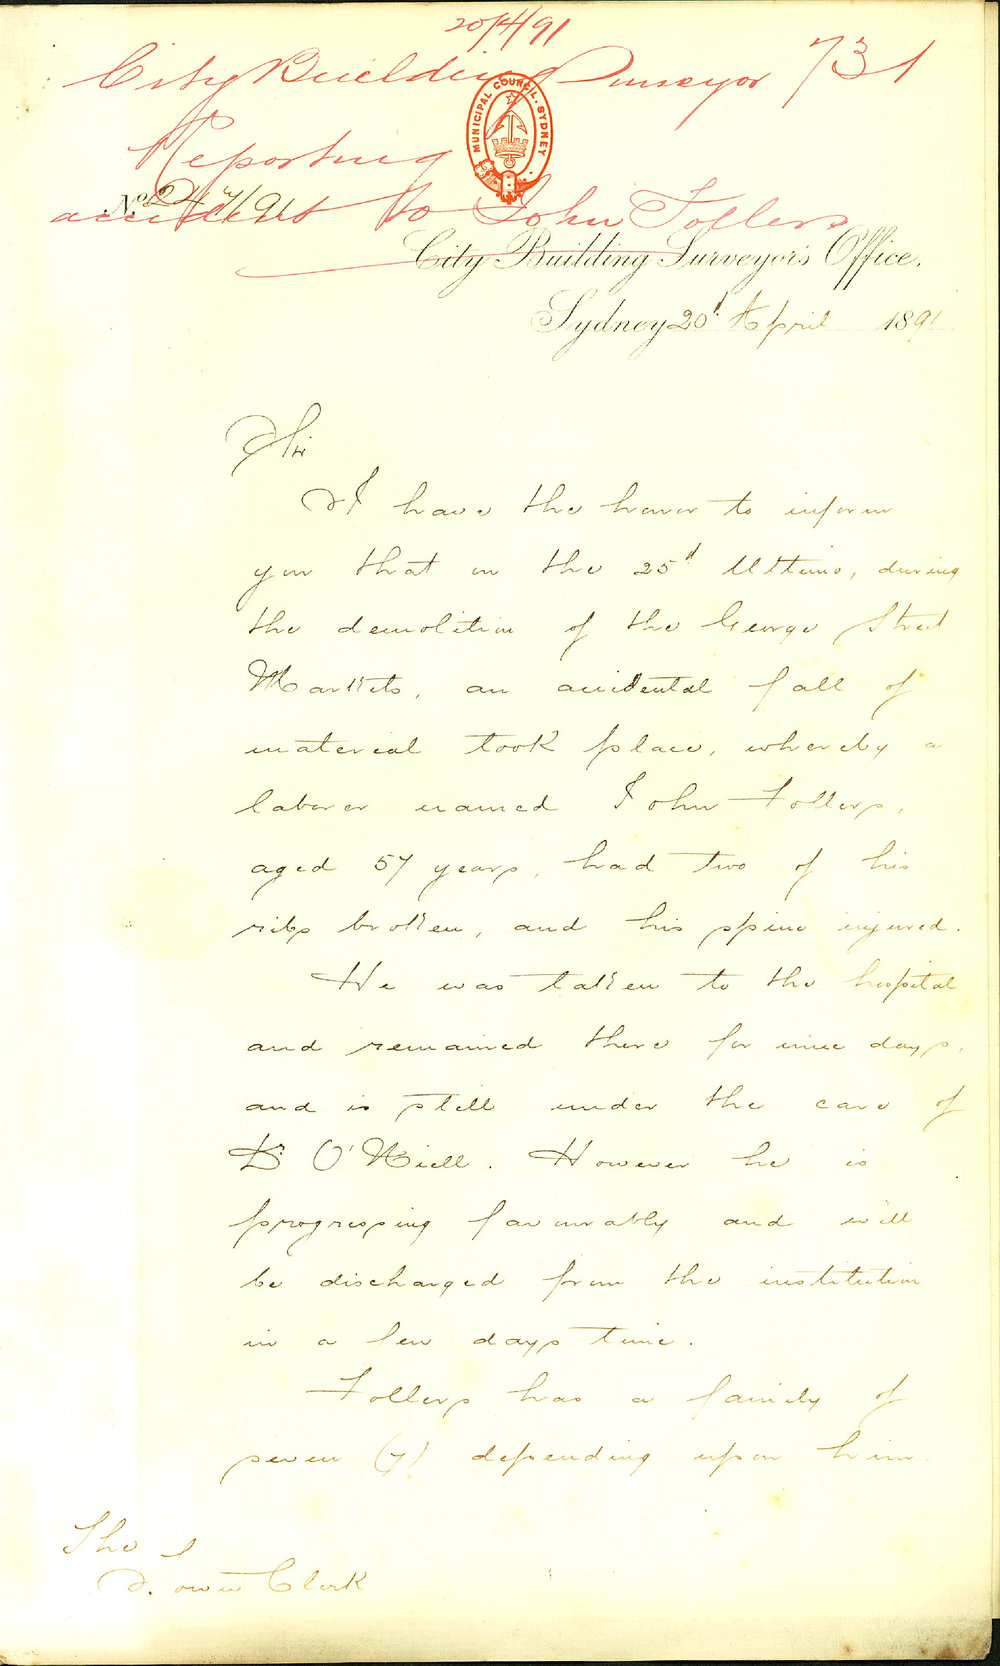 20/4/91
City Building Surveyor 731
MUNICIPAL COUNCIL. SYDNEY
Reporting
No 247/91
accident to John Follers
City Building Surveyor's Office,
Sydney 20th April 1891
Sir
I have the honor to inform
you that on the 25th Ultimo, during
the demolition of the George Street
Markets, an accidental fall of
material took place, whereby a
laborer named John Follers,
aged 57 years, had two of his
ribs broken, and his spine injured.
He was taken to the hospital
and remained there for nine days,
and is still under the care of
Dr O'Niell. However he is
progressing favourably and will
be discharged from the institution
in a few days time.
Follers has a family of
seven (7) depending upon him.
The
Town Clerk